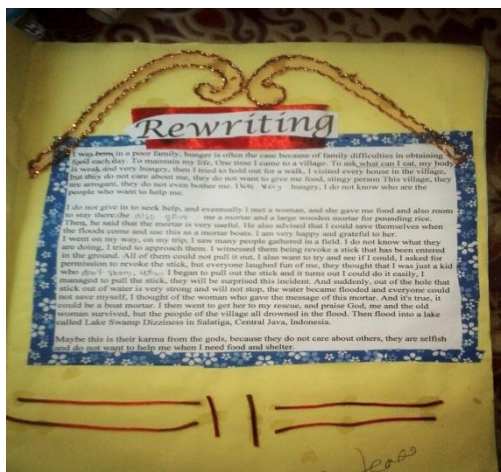 Rewriting
I was born in a poor family, hunger is often the case because of family difficulties in obtaining
food each day. To maintain my life, One time I came to a village. To ask what can I eat, my body
is weak and very hungry, then I tried to hold out for a walk, I visited every house in the village,
but they do not care about me, they do not want to give me food, stingy person This village, they
are arrogant, they do not even bother me. I was very hungry, I do not know who are the
people who want to help me.
I do not give in to seek help, and eventually I met a woman, and she gave me food and also room
to stay there.she also gave me a mortar and a large wooden mortar for pounding rice.
Then, he said that the mortar is very useful. He also advised that I could save themselves when
the floods come and use this as a mortar boats. I am very happy and grateful to her.
I went on my way, on my trip, I saw many people gathered in a field. I do not know what they
are doing, I tried to approach them. I witnessed them being revoke a stick that has been entered
in the ground. All of them could not pull it out, I also want to try and see if I could, I asked for
permission to revoke the stick, but everyone laughed fun of me, they thought that I was just a kid
who don't I began to pull out the stick and it turns out I could do it easily, I
managed to pull the stick, they will be surprised this incident. And suddenly, out of the hole that
stick out of water is very strong and will not stop, the water became flooded and everyone could
not save myself, I thought of the woman who gave the message of this mortar. And it's true, it
could be a boat mortar. I then went to get her to my rescue, and praise God, me and the old
woman survived, but the people of the village all drowned in the flood. Then flood into a lake
called Lake Swamp Dizziness in Salatiga, Central Java, Indonesia.
Maybe this is their karma from the gods, because they do not care about others, they are selfish
and do not want to help me when I need food and shelter.